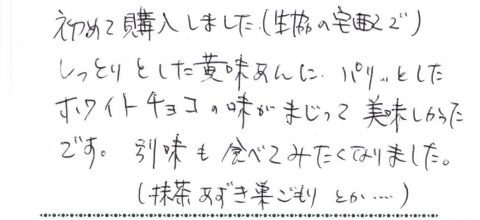 初めて購入しました。(生協の宅配で)
しっとりとした黄味あんに、パリッとした
ホワイトチョコの味がまじって美味しかった
です。別味も食べてみたくなりました。
(抹茶あずき巣ごもりとか‥‥)